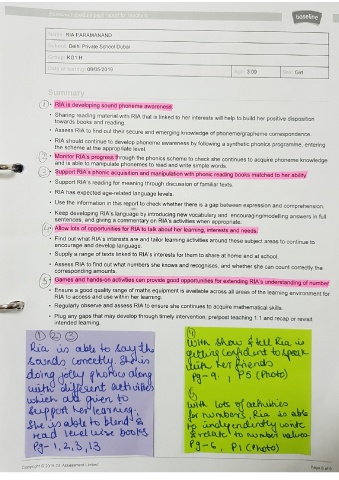 baseline
Name: RIA PARAMANAND
School: Delhi Private School Dubai
Group: KG1 H
Date of testing: 08/05/2019 Age: 3:09 Sex: Girl
Summary
① • RIA is developing sound phoneme awareness
• Sharing reading material with RIA that is linked to her interests will help to build her positive disposition
towards books and reading.
• Assess RIA to find out their secure and emerging knowledge of phoneme/grapheme correspondence.
• RIA should continue to develop phoneme awareness by following a synthetic phonics programme, entering
the scheme at the appropriate level.
② • Monitor RIA's progress through the phonics scheme to check she continues to acquire phoneme knowledge
and is able to manipulate phonemes to read and write simple words.
③ • Support RIA's phonic acquisition and manipulation with phonic reading books matched to her ability
• Support RIA's reading for meaning through discussion of familiar texts.
• RIA has expected age-related language levels.
• Use the information in this report to check whether there is a gap between expression and comprehension.
• Keep developing RIA's language by introducing new vocabulary and encouraging/modelling answers in full
sentences, and giving a commentary on RIA's activities when appropriate.
④ • Allow lots of opportunities for RIA to talk about her learning, interests and needs.
• Find out what RIA's interests are and tailor learning activities around these subject areas to continue to
encourage and develop language.
• Supply a range of texts linked to RIA's interests for them to share at home and at school.
• Assess RIA to find out what numbers she knows and recognises, and whether she can count correctly the
corresponding amounts.
⑤ • Games and hands-on activities can provide good opportunities for extending RIA's understanding of number
• Ensure a good quality range of maths equipment is available across all areas of the learning environment for
RIA to access and use within her learning.
• Regularly observe and assess RIA to ensure she continues to acquire mathematical skills.
• Plug any gaps that may develop through timely intervention, pre/post teaching 1:1 and recap or revisit
intended learning.
① ② ③
Ria is able to say the
sounds correctly. She is
doing jolly phonics along
with different activities
which are given to
support her learning.
She is able to blend &
read level wise books
Pg- 1, 2, 3, 13
④
With show & tell Ria is
getting confident to speak
with her friends
Pg-9, P5 (Photo)
5
With lots of activities
for numbers, Ria is able
to independently write
& relate to number values
Pg-6, P1 (Photo)